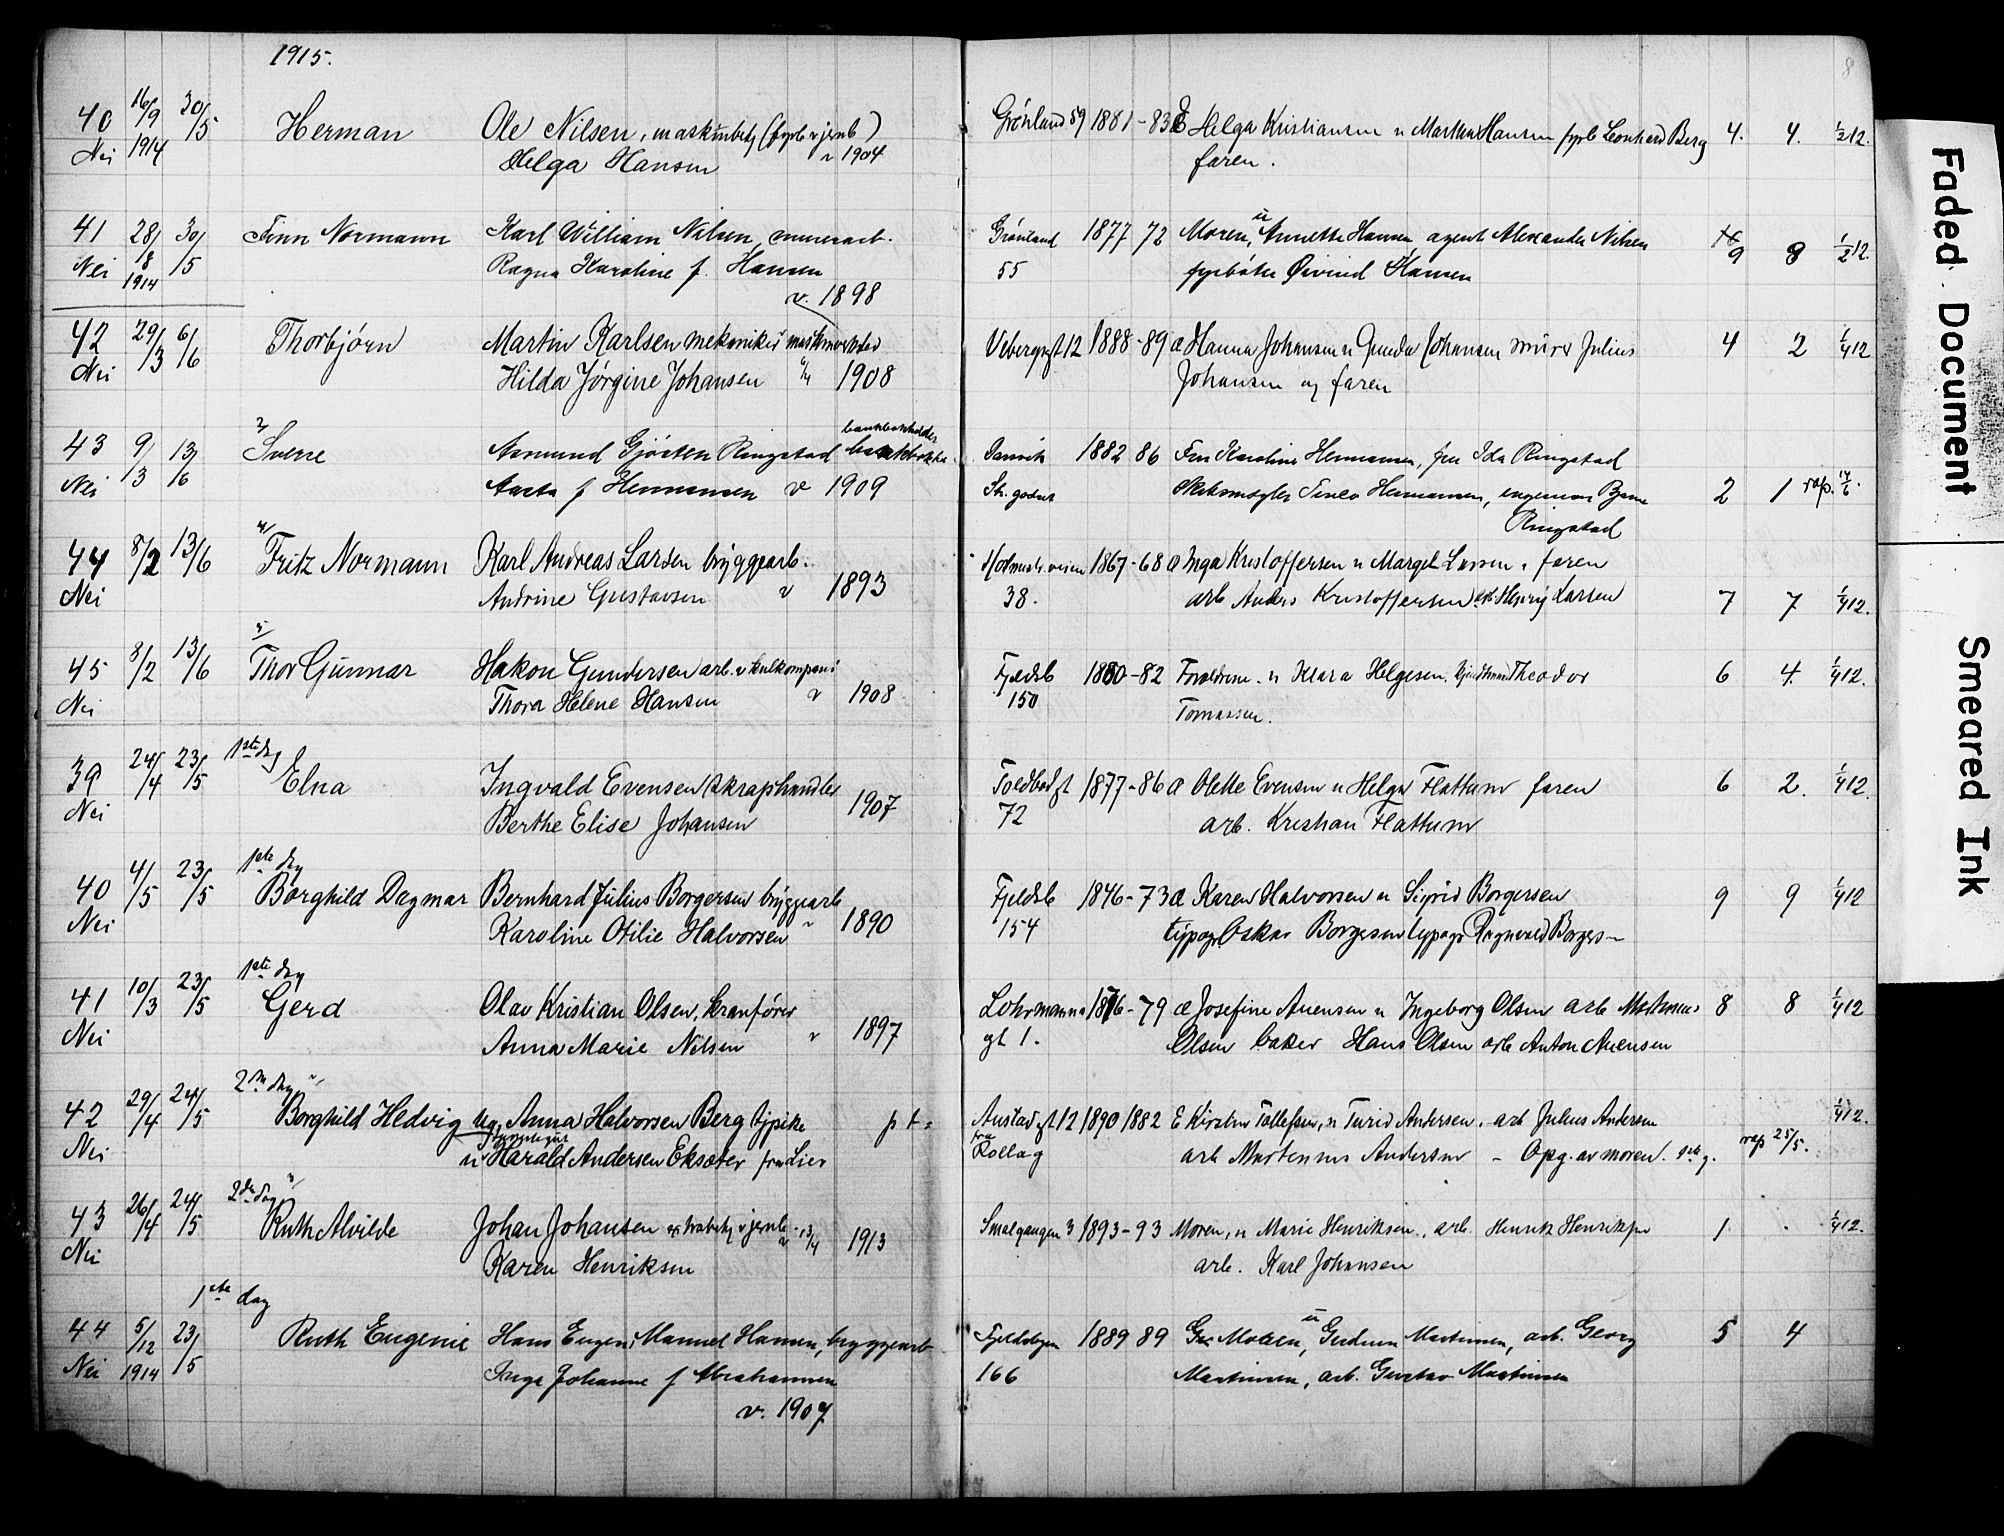 1915.
8
40 16/9 30/5 Herman Ole Nilsen, maskinbetj (fyrb v jernb) Grönland 59 1881-83 Helga Kristiansen u Martha Hansen fyrb Leonhard Berg 4. 4. 1/2 12.
Nei 1914 Helga Hansen v 1904 faren.
41 28/8 30/5 Finn Normann Karl William Nilsen, murerarb. Grönland 1877 72 Moren, u Annette Hansen, agent Alexander Nilsen 9 8 1/2 12.
Nei 1914 Ragna Karoline f. Hansen 55 fyrböter Øivind Hansen
v. 1898
42 29/3 6/6 Thorbjörn Martin Karlsen mekaniker Vebergsgt 12 1888-89 æ Hanna Johansen u Gunda Johansen murer Julius 4 2 1/4 12
Nei Hilda Jørgine Johansen 1908 Johansen og faren
43 9/3 13/6 Sverre Aamund Gjösten Ringstad bankbokholder Danvik 1882 86 Fru Karoline Hermansen, fru Ida Ringstad
Nei Aasta f Hermansen v 1909 Str. godset Skibsmægler Hermansen, ingeniør Bjarne 2 1 rap.
Ringstad
44 8/2 13/6 Fritz Normann Karl Andreas Larsen bryggearb. 1867-68 æ Inga Kristoffersen u Margit Larsen, faren
Nei Andrine Gustavsen v 1893 38. arb Anders Kristoffersen arb Henrig Larsen 7 7 1/4 12.
45 8/2 13/6 Thor Gunnar Hakon Gundersen arb. v kulkompani Fjeldsb 1880-82 Foreldrene. u Klara Helgesen, Theodor 6 4. 1/4 12.
Nei Thora Helene Hansen v 1908 150 Tomassen.
39 24/4 23/5 1ste dag Elna Ingvald Evensen skraphandler Toldbodgt 1877-86 æ Olette Evensen u Helga Flattum faren 6 2. 1/4 12.
Nei Berthe Elise Johansen 1907 72 arb. Kristian Flattum
40 4/5 23/5 1ste dag Borghild Dagmar Bernhard Julius Borgersen bryggearb Fjeldsb 1846-73 æ Karen Halvorsen u Sigrid Borgersen 9 9 1/4 12
Nei Karoline Otilie Halvorsen v 1890 154 typogr Oskar Borgersen typogr Ragnvald Borgers
41 10/3 23/5 1ste dag Gerd Olav Kristian Olsen, kranförer Lohrmanns 1876-79 æ Josefine Auensen u Ingeborg Olsen arb Martinius 8 8 1/4 12
Nei Anna Marie Nilsen v 1897 gt 1. Olsen baker Hans Olsen arb Anton Auensen
42 29/4 24/5 2den dag Borghild Hedvig Ug. Anna Halvorsen Berg tjpike p t = Austadgt 12 1890 1882 E Kirsten Tollefsen, u Turid Andersen. arb Julius Andersen 1/4 12.
Nei u Harald Andersen Eksæter fra Lier fra Rollag arb Martinius Andersen - Opg. av moren. 1ste g. rap 25/5.
43 26/4 24/5 2den dag Ruth Alvilde Johan Johansen v jernb v 13/4 1913 Smalgangen 3 1893-93 Moren, u Marie Henriksen, arb. Henrik Henriksen 1 . 1/4 12.
Nei Karen Henriksen arb. Karl Johansen
1ste dag
44 5/12 23/5 Ruth Eugenie Hans Eugen Manuel Hansen, bryggearb Fjeldsbyen 1889 89 Moren, u Gudrun Martinsen, arb. Georg 5 4
Nei 1914 Inga Johanne f Abrahamsen 166 Martinsen, arb. Gustav Martinsen
v. 1907
Faded Document
Smeared Ink